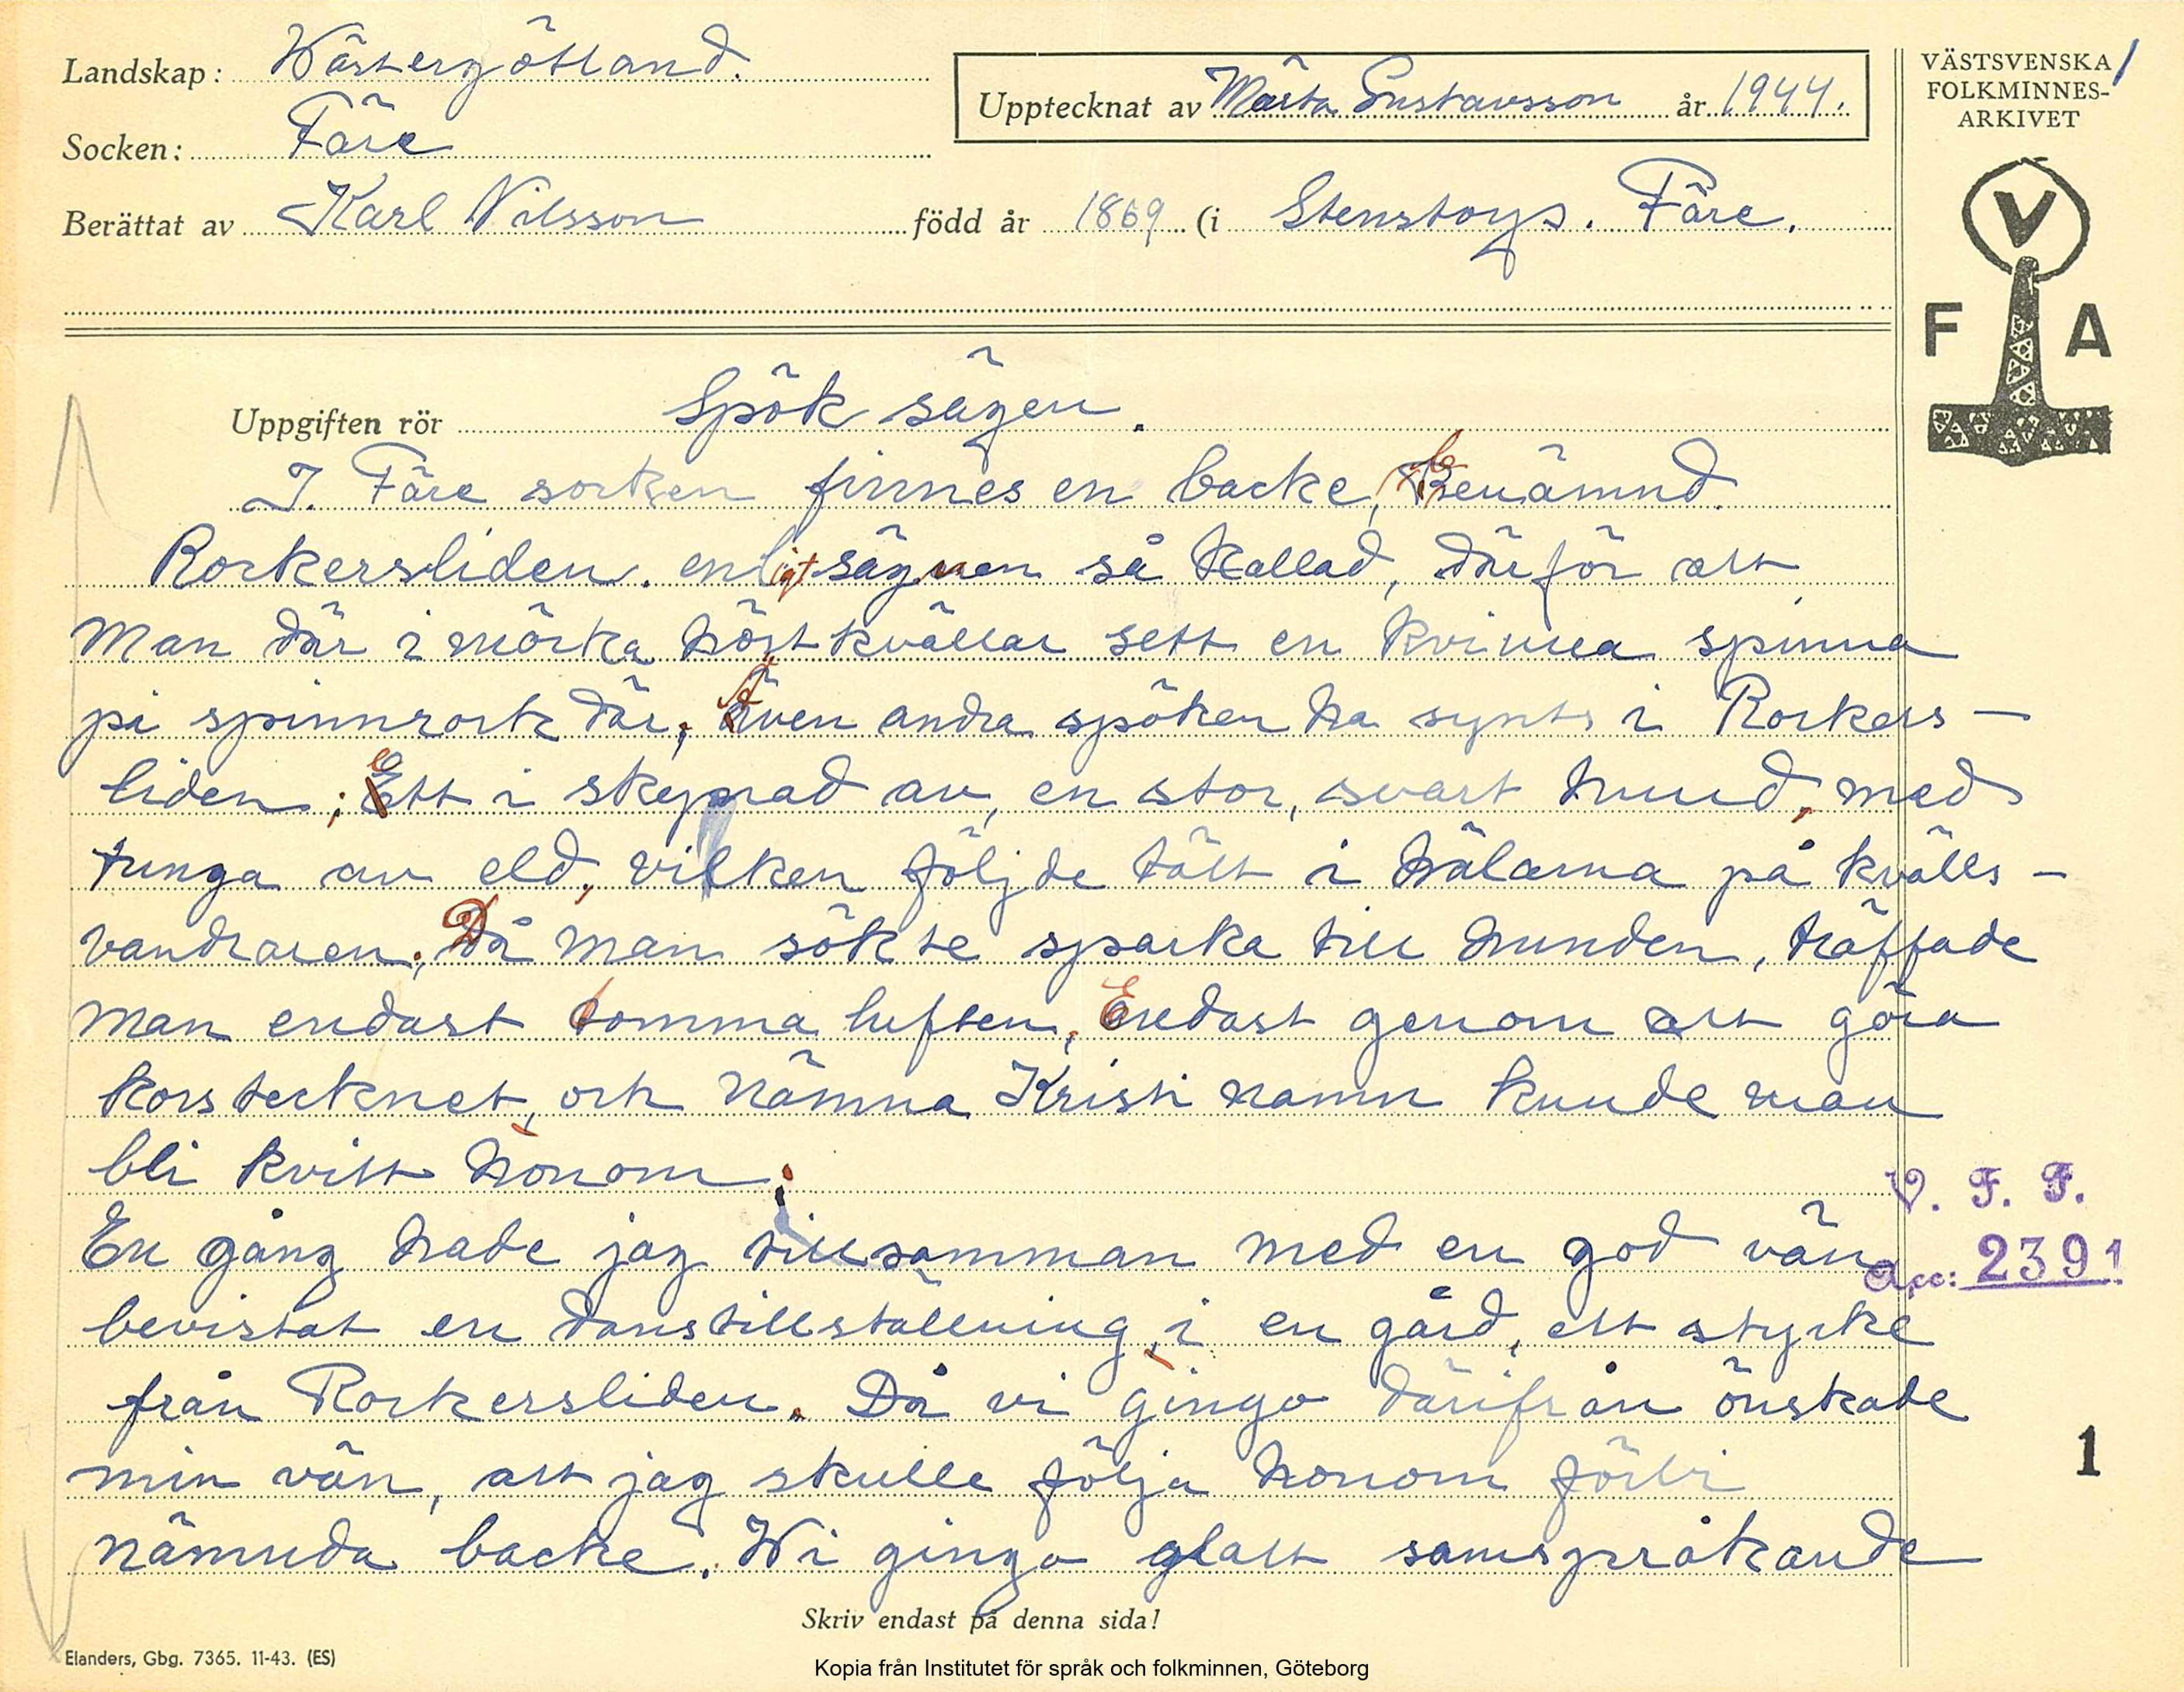 Landskap: Wästergötland.
Socken: Färe
Berättat av Karl Nilsson född år 1869 (i Stenstorps. Färe.
Upptecknat av Märta Gustavsson år 1944.
VÄSTSVENSKA 1
FOLKMINNES-
ARKIVET
V
F A
Uppgiften rör Spök sägen.
I. Färe socken finnes en backe, benämnd
Rockersliden. enligt sägnen så kallad, därför att
man där i mörka höstkvällar sett en kvinna spinna
på spinnrock där; Även andra spöken ha synts i Rockers-
liden; ett i skepnad av, en stor, svart hund, med
tunga av eld, vilken följde tätt i hälarna på kvälls-
vandraren. Då man sökte sparka till hunden, träffade
man endast tomma luften. Endast genom att göra
korstecknet, och nämna Kristi namn kunde man
bli kvitt honom.
En gång hade jag tillsamman med en god vän
bevistat en danstillställning, i en gård, ett stycke
från Rockersliden. Då vi gingo därifrån önskade
min vän, att jag skulle följa honom förbi
nämnda backe. Wi gingo glatt samspråkande
V. F. F.
Acc: 2391
1
Skriv endast på denna sida!
Elanders, Gbg. 7365. 11-43. (ES)
Kopia från Institutet för språk och folkminnen, Göteborg